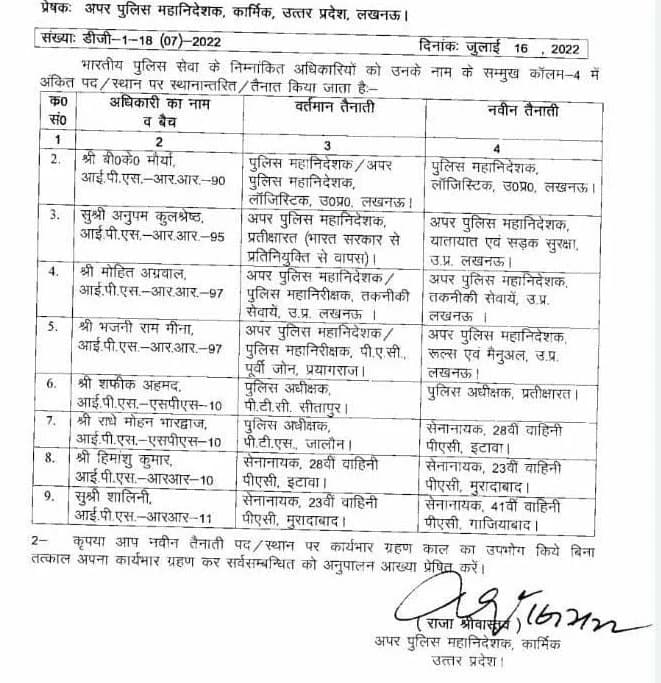 प्रेषकः अपर पुलिस महानिदेशक, कार्मिक, उत्तर प्रदेश, लखनऊ।
संख्याः डीजी–1–18 (07)–2022 दिनांकः जुलाई 16 , 2022
भारतीय पुलिस सेवा के निम्नांकित अधिकारियों को उनके नाम के सम्मुख कॉलम–4 में
अंकित पद/स्थान पर स्थानान्तरित/तैनात किया जाता हैः–
क0 सं0 अधिकारी का नाम व बैच वर्तमान तैनाती नवीन तैनाती
1 2 3 4
2. श्री बी0के0 मौर्या, पुलिस महानिदेशक/अपर पुलिस महानिदेशक,
आई.पी.एस.–आर.आर.–90 पुलिस महानिदेशक, लॉजिस्टिक, उ0प्र0, लखनऊ।
लॉजिस्टिक, उ0प्र0, लखनऊ।
3. सुश्री अनुपम कुलश्रेष्ठ, अपर पुलिस महानिदेशक, अपर पुलिस महानिदेशक,
आई.पी.एस.–आर.आर.–95 प्रतीक्षारत (भारत सरकार से यातायात एवं सड़क सुरक्षा,
प्रतिनियुक्ति से वापस)। उ.प्र. लखनऊ।
4. श्री मोहित अग्रवाल, अपर पुलिस महानिदेशक/ अपर पुलिस महानिदेशक,
आई.पी.एस.–आर.आर.–97 पुलिस महानिरीक्षक, तकनीकी तकनीकी सेवायें, उ.प्र.
सेवायें, उ.प्र. लखनऊ । लखनऊ ।
5. श्री भजनी राम मीना, अपर पुलिस महानिदेशक/ अपर पुलिस महानिदेशक,
आई.पी.एस.–आर.आर.–97 पुलिस महानिरीक्षक, पी.ए.सी., रूल्स एवं मैनुअल, उ.प्र.
पूर्वी जोन, प्रयागराज। लखनऊ।
6. श्री शफीक अहमद, पुलिस अधीक्षक, पुलिस अधीक्षक, प्रतीक्षारत।
आई.पी.एस.–एसपीएस–10 पी.टी.सी. सीतापुर।
7. श्री राधे मोहन भारद्वाज, पुलिस अधीक्षक, सेनानायक, 28वीं वाहिनी
आई.पी.एस.–एसपीएस–10 पी.टी.एस., जालौन। पीएसी, इटावा।
8. श्री हिमांशु कुमार, सेनानायक, 28वीं वाहिनी सेनानायक, 23वीं वाहिनी
आई.पी.एस.–आरआर–10 पीएसी, इटावा। पीएसी, मुरादाबाद।
9. सुश्री शालिनी, सेनानायक, 23वीं वाहिनी सेनानायक, 41वीं वाहिनी
आई.पी.एस.–आरआर–11 पीएसी, मुरादाबाद। पीएसी, गाजियाबाद।
2– कृपया आप नवीन तैनाती पद/स्थान पर कार्यभार ग्रहण काल का उपभोग किये बिना
तत्काल अपना कार्यभार ग्रहण कर सर्वसम्बन्धित को अनुपालन आख्या प्रेषित करें।
(राजा श्रीवास्तव)
अपर पुलिस महानिदेशक, कार्मिक
उत्तर प्रदेश।